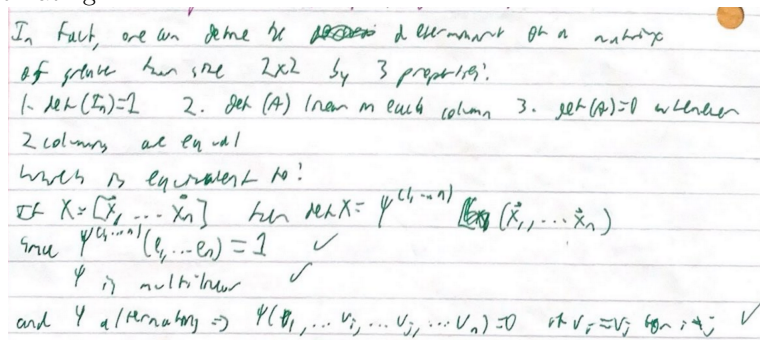 In fact, one can define the determinant of a matrix
of greater than size 2x2 by 3 properties:
1. det(Iₙ)=1 2. det(A) linear in each column 3. det(A)=0 whenever
2 columns are equal
which is equivalent to:
If X=[x⃗₁ ... x⃗ₙ] then det X = ψ^(1,...n) (x⃗₁, ... x⃗ₙ)
since ψ^(1,...n) (e₁, ...eₙ) = 1 ✓
ψ is multilinear ✓
and ψ alternating ⇒ ψ(v₁, ... vᵢ, ... vⱼ, ... vₙ)=0 if vᵢ=vⱼ for i≠j ✓